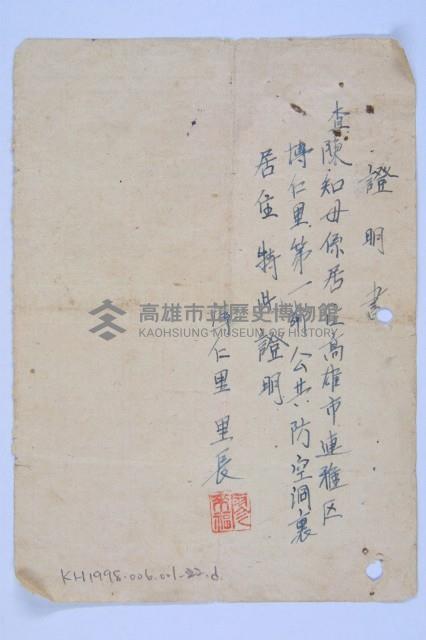 證明書
查陳知母係居住高雄市連雅区
博仁里第一鄰公共防空洞裏
居住特此證明
博仁里里長
高雄市立歷史博物館
KAOHSIUNG MUSEUM OF HISTORY
KH1998.006.001-22.d